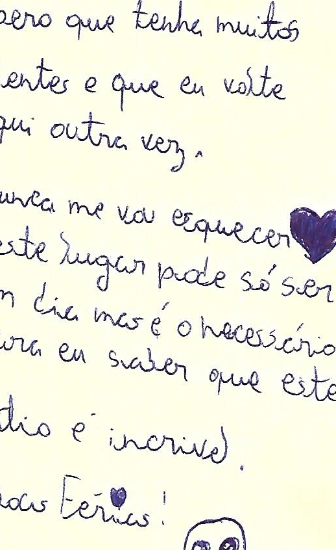 pero que tenha muitos
entes e que eu volte
qui outra vez.
unca me vou esquecer
este lugar pode só ser
m dia mas é o necessário
ara eu saber que este
dio é incrivel.
oas Férias!